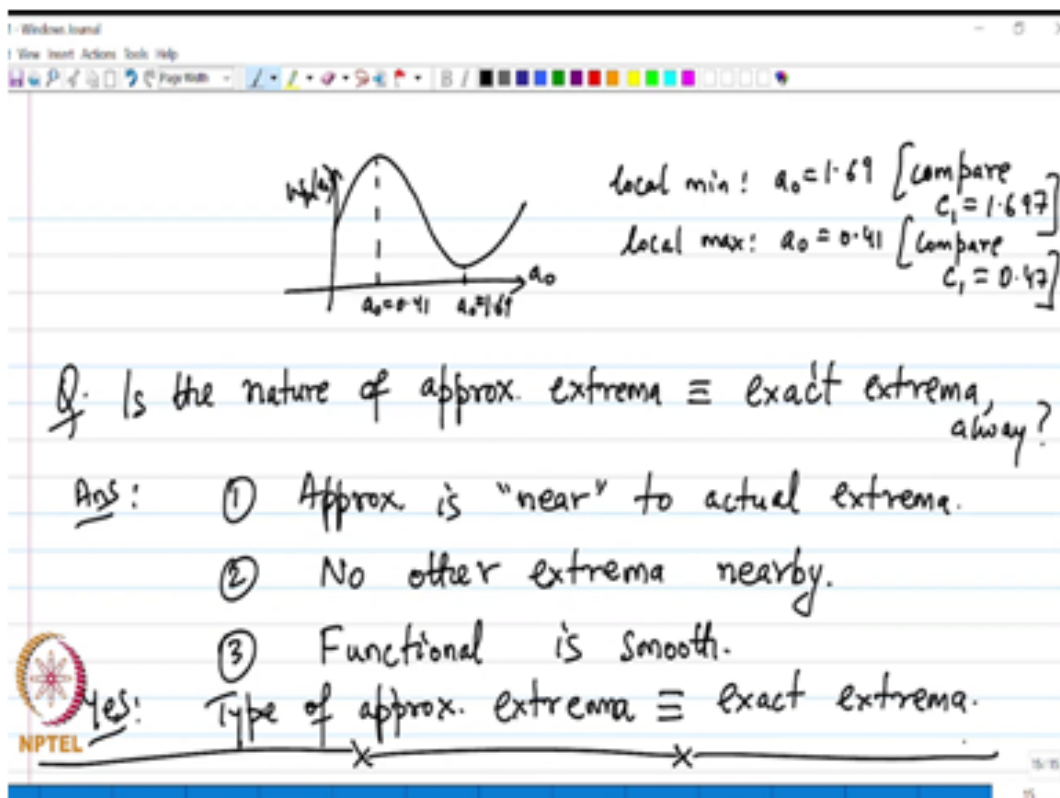 - Windows Journal
View Insert Actions Tools Help
Page Width
B I
a₀
a₀=0.41 a₀=1.69
local min: a₀=1.69 [compare
c₁=1.697]
local max: a₀=0.41 [compare
c₁=0.47]
Q. Is the nature of approx. extrema ≡ exact extrema,
alway?
Ans: ① Approx. is "near" to actual extrema.
② No other extrema nearby.
③ Functional is smooth.
Yes: Type of approx. extrema ≡ exact extrema.
NPTEL
15/15
15